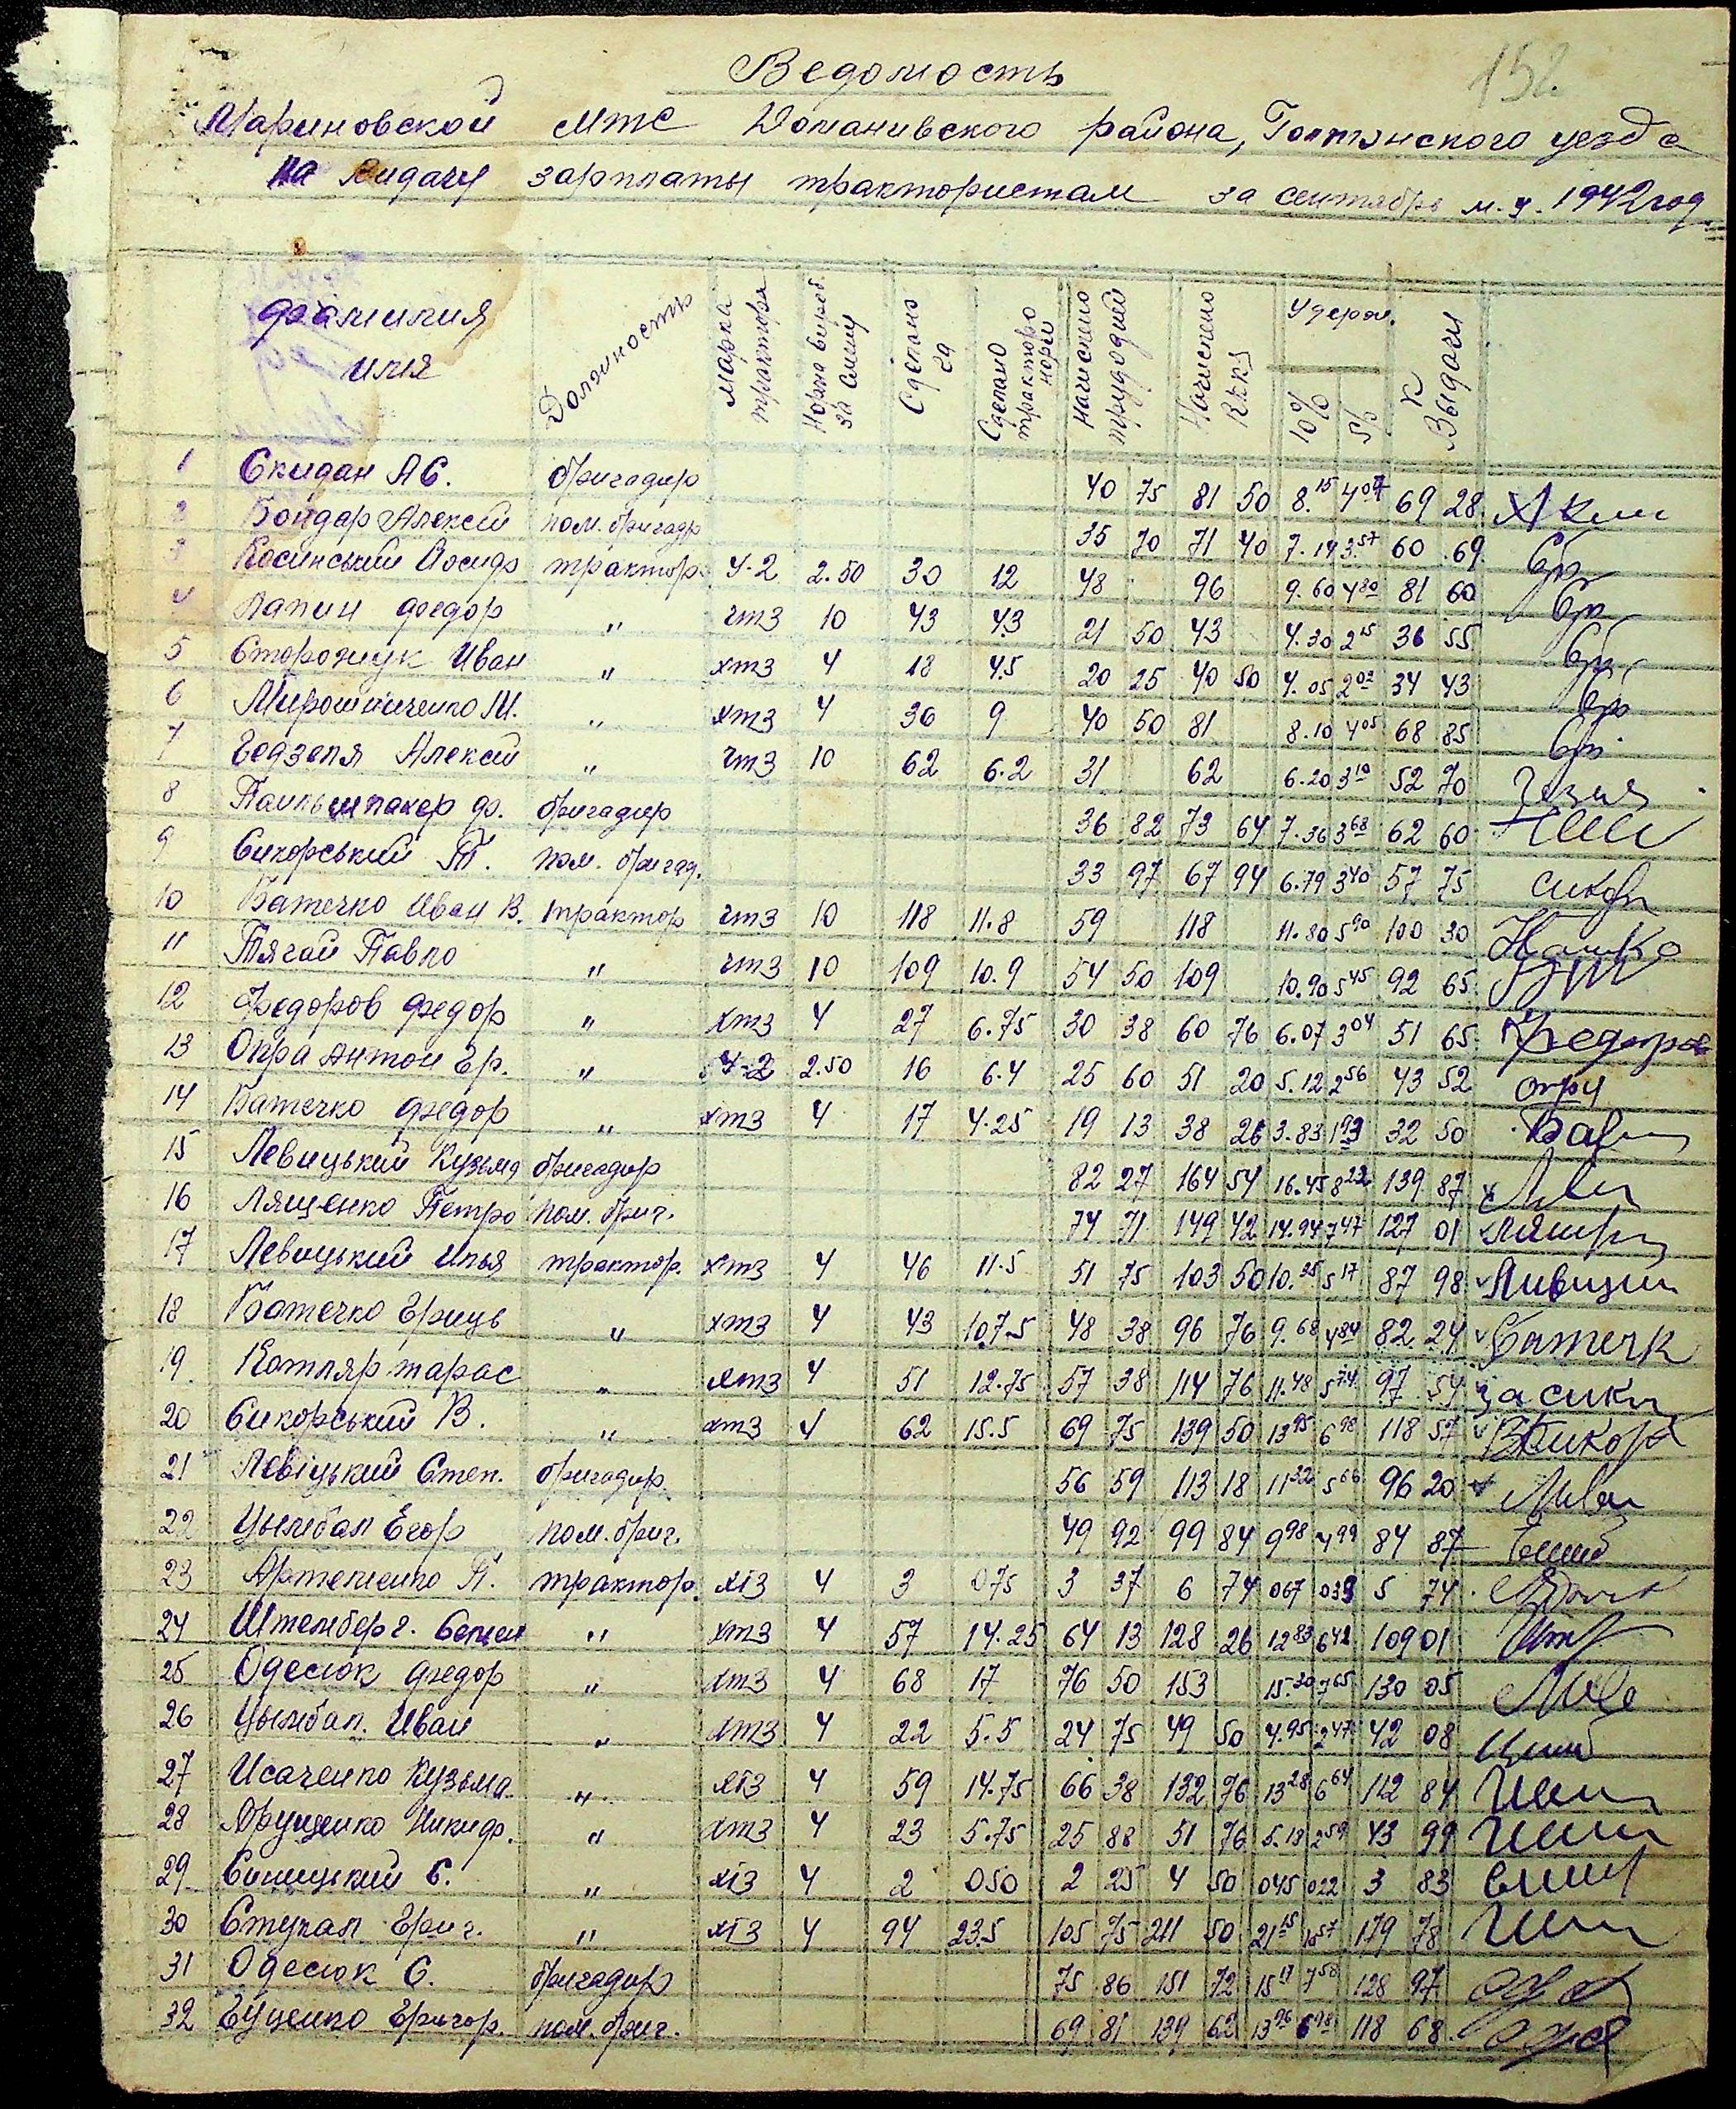 152.
Ведомость
Мариновской МТС Доманивского района, Голтянского уезда
на видачу зарплаты трактористам за сентябрь м-ц. 1942 год
фамилия имя Должность Марка трактора Норма выраб. за смену Сделано га Сделано тракторо норм Начислено трудодней Начислено RKKS Удерж. 10% 5% К Выдачи
1 Скидан А С. бригадир 40 75 81 50 8.15 4 07 69 28
2 Бондар Алексей пом. бригадр 35 70 71 40 7.14 3.57 60 69
3 Косинський Иосиф трактор. У-2 2.50 30 12 48 96 9.60 4 80 81 60
4 Лапин Федор " чтз 10 43 4.3 21 50 43 4.30 2 15 36 55
5 Сторожук Иван " хтз 4 18 4.5 20 25 40 50 4.05 2 02 34 43
6 Мирошниченко М. " хтз 4 36 9 40 50 81 8.10 4 05 68 85
7 Гедзеля Алексей " чтз 10 62 6.2 31 62 6.20 3 10 52 70
8 Ф. бригадир 36 82 73 64 7.36 3 68 62 60
9 Сикорський П. пом. бригад. 33 97 67 94 6.79 3 40 57 75
10 Батечко Иван В. трактор чтз 10 118 11.8 59 118 11.80 5 90 100 30
11 Тягай Павло " чтз 10 109 10.9 54 50 109 10.90 5 45 92 65
12 Федоров Федор " хтз 4 27 6.75 30 38 60 76 6.07 3 04 51 65 Федоров
13 Опра Антон Гр. " У-2 2.50 16 6.4 25 60 51 20 5.12 2 56 43 52
14 Батечко Федор " хтз 4 17 4.25 19 13 38 26 3.83 1 93 32 50
15 Левицький Кузьма бригадир 82 27 164 54 16.45 8 22 139 87
16 Лященко Петро пом. бриг. 74 71 149 42 14.94 7 47 127 01
17 Левицький Илья трактор. хтз 4 46 11.5 51 75 103 50 10.35 5 17 87 98
18 Батечко Гриць " хтз 4 43 10 7.5 48 38 96 76 9.68 4 84 82 24 Батечк
19. Котляр тарас " хтз 4 51 12.75 57 38 114 76 11.48 5 74 97 54
20 Сикорський В. " хтз 4 62 15.5 69 75 139 50 13 95 6 98 118 57
21 Левіцький Степ. бригадир. 56 59 113 18 11 32 5 66 96 20
22 Цымбал Егор пом. бриг. 49 92 99 84 9 98 4 99 84 87
23 Артеменко П. трактор. хтз 4 3 0 75 3 37 6 74 0 67 0 33 5 74
24 Штемберг. Семен " хтз 4 57 14.25 64 13 128 26 12 83 6 42 109 01
25 Одесюк Федор " хтз 4 68 17 76 50 153 15.30 7 65 130 05
26 Цымбал. Иван " хтз 4 22 5.5 24 75 49 50 4.95 2 47 42 08
27 Исаченко Кузьма. " хтз 4 59 14.75 66 38 132 76 13 28 6 64 112 84
28 Никиф. " хтз 4 23 5.75 25 88 51 76 5.18 2 59 43 99
29 Синицький С. " хтз 4 2 0 50 2 25 4 50 0 45 0 22 3 83
30 Стукал Григ. " хтз 4 94 23.5 105 75 211 50 21 15 10 57 179 78
31 Одесюк С. бригадир 75 86 151 72 15 17 7 58 128 97
32 Григор. пом. бриг. 69 81 139 62 13 96 6 98 118 68